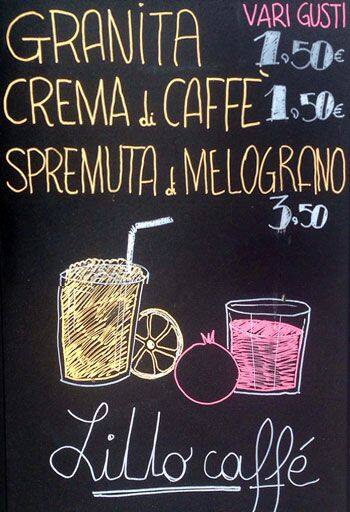 GRANITA VARI GUSTI
1,50€
CREMA di CAFFÈ 1,50€
SPREMUTA di MELOGRANO
3,50
Lillo caffé